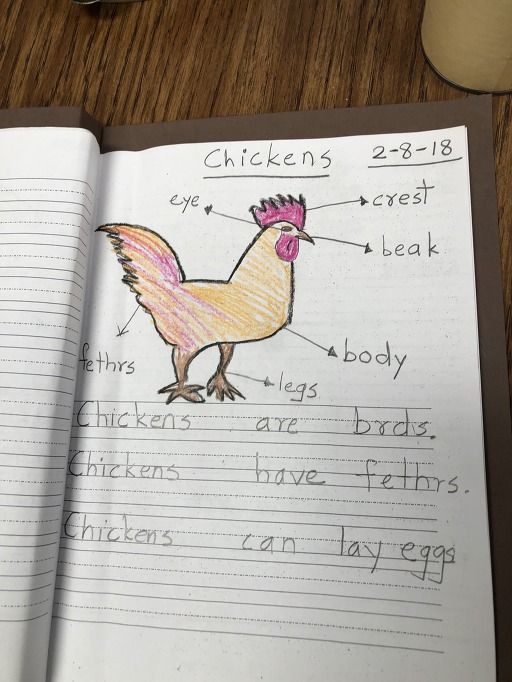 Chickens 2-8-18
eye crest
beak
fethrs body
legs
Chickens are brds.
Chickens have fethrs.
Chickens can lay eggs